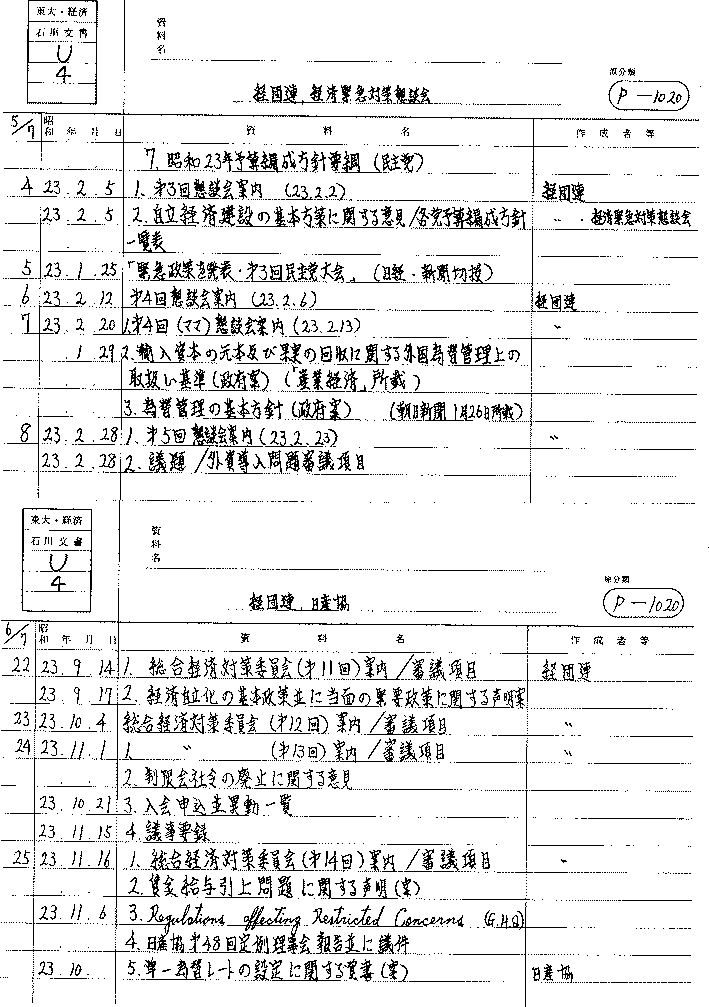 東大・経済
石川文書
U
4
資料名
経団連, 経済緊急対策懇談会
原分類
P-1020
5/7
昭和 年 月 日 資料名 作成者等
7. 昭和23年予算編成方針要綱 (民主党)
4 23. 2. 5 1. 第3回懇談会案内 (23.2.2) 経団連
23. 2. 5 2. 自立経済建設の基本方策に関する意見/各党予算編成方針 〃 ・経済緊急対策懇談会
一覧表
5 23. 1. 25 「緊急政策を発表・第3回民主党大会」 (日経・新聞切抜)
6 23. 2. 12 第4回懇談会案内 (23.2.6) 経団連
7 23. 2. 20 1. 第4回(ママ)懇談会案内 (23.2.13) 〃
1 29 2. 輸入資本の元本及び果実の回収に関する外国為替管理上の
取扱い基準 (政府案) (「産業経済」所載)
3. 為替管理の基本方針 (政府案) (朝日新聞1月26日所載)
8 23. 2. 28 1. 第5回懇談会案内 (23.2.23) 〃
23. 2. 28 2. 議題 /外資導入問題審議項目
東大・経済
石川文書
U
4
資料名
経団連, 日産協
原分類
P-1020
6/7
昭和 年 月 日 資料名 作成者等
22 23. 9. 14 1. 総合経済対策委員会(第11回)案内 /審議項目 経団連
23. 9. 17 2. 経済自立化の基本政策並に当面の重要政策に関する声明案
23 23. 10. 4 総合経済対策委員会 (第12回) 案内 /審議項目 〃
24 23. 11. 1 1. 〃 (第13回) 案内 /審議項目 〃
2. 制限会社令の廃止に関する意見
23. 10. 21 3. 入会申込並異動一覧
23. 11. 15 4. 議事要録
25 23. 11. 16 1. 総合経済対策委員会(第14回)案内 /審議項目 〃
2. 賃金給与引上問題に関する声明(案)
23. 11. 6 3. Regulations affecting Restricted Concerns (G.H.Q)
4. 日産協第48回定例理事会報告並に議件
23. 10. 5. 単一為替レートの設定に関する覚書(案) 日産協